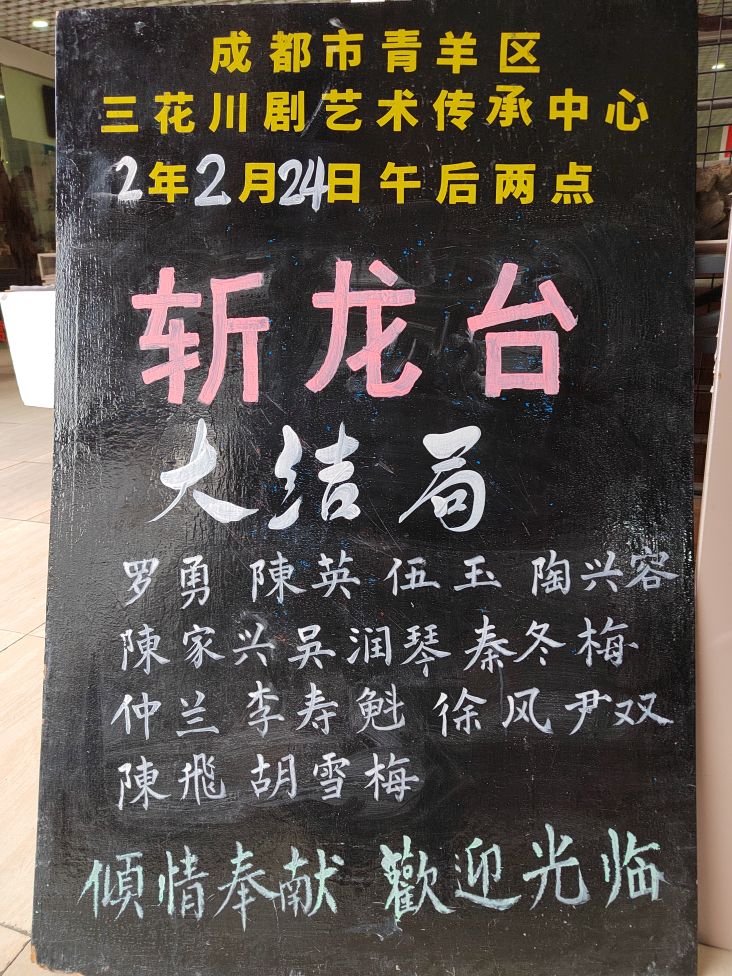 成都市青羊区
三花川剧艺术传承中心
2年2月24日午后两点
斩龙台
大结局
罗勇 陳英 伍玉 陶兴容
陳家兴 吳润琴 秦冬梅
仲兰 李寿魁 徐风 尹双
陳飛 胡雪梅
倾情奉献 歡迎光临